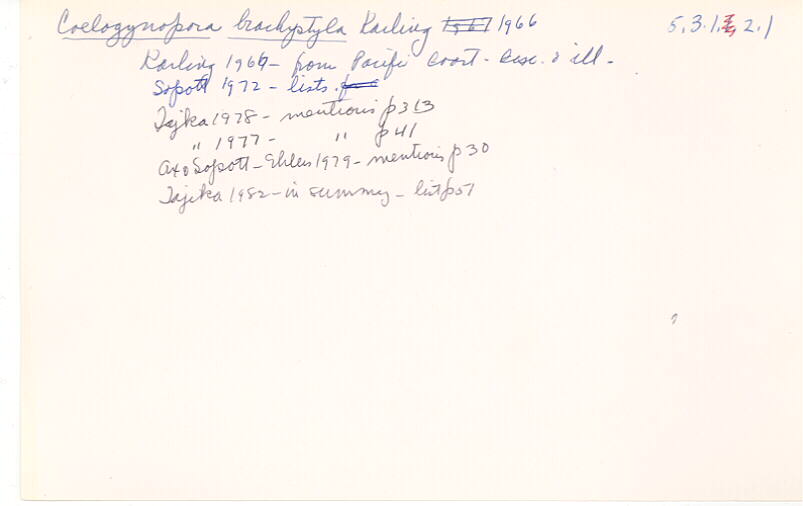 Coelogynopora brachystyla Karling 1966 5.3.1.2.1
Karling 1966 - from Pacific coast - desc. & ill -
Sopott 1972 - lists.
Tajika 1978 - mentions p313
" 1977 - " p41
Ax & Sopott-Ehlers 1979 - mentions p30
Tajika 1982 - in summary - list p57